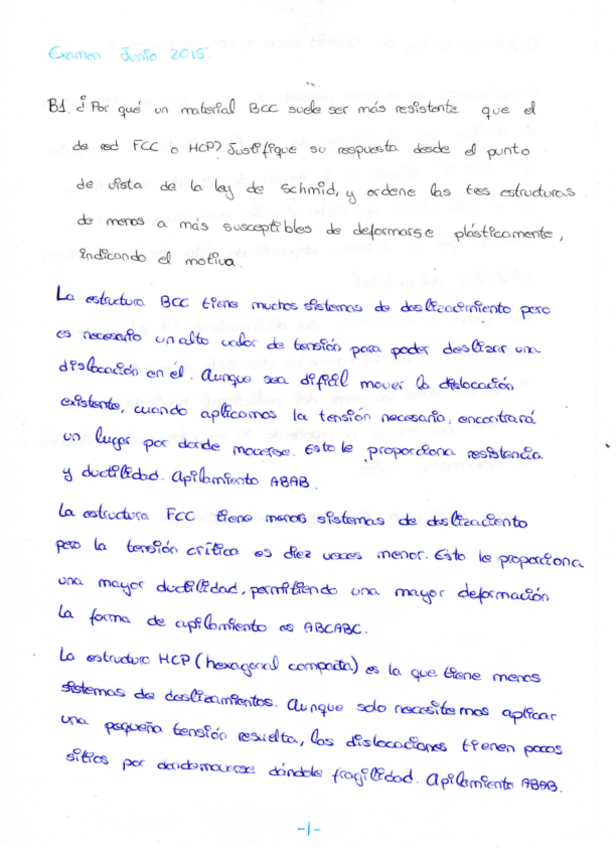 Examen Junio 2015.
B1 ¿Por qué un material BCC suele ser más resistente que el
de red FCC o HCP? Justifique su respuesta desde el punto
de vista de la ley de Schmid, y ordene las tres estructuras
de menos a más susceptibles de deformarse plásticamente,
indicando el motivo.
La estructura BCC tiene muchos sistemas de deslizamiento pero
es necesario un alto valor de tensión para poder deslizar una
dislocación en él. Aunque sea dificil mover la dislocación
existente, cuando aplicamos la tensión necesaria, encontrará
un lugar por donde moverse. Esto le proporciona resistencia
y ductilidad. Apilamiento ABAB.
La estructura FCC tiene menos sistemas de deslizaciento
pero la tensión crítica es diez veces menor. Esto le proporciona
una mayor ductilidad, permitiendo una mayor deformación
La forma de apilamiento es ABCABC.
La estructura HCP (hexagonal compacta) es la que tiene menos
sistemas de deslizamientos. Aunque solo necesitemos aplicar
una pequeña tensión resuelta, las dislocaciones tienen pocos
sitios por donde moverse dándole fragilidad. Apilamiento ABAB.
-1-